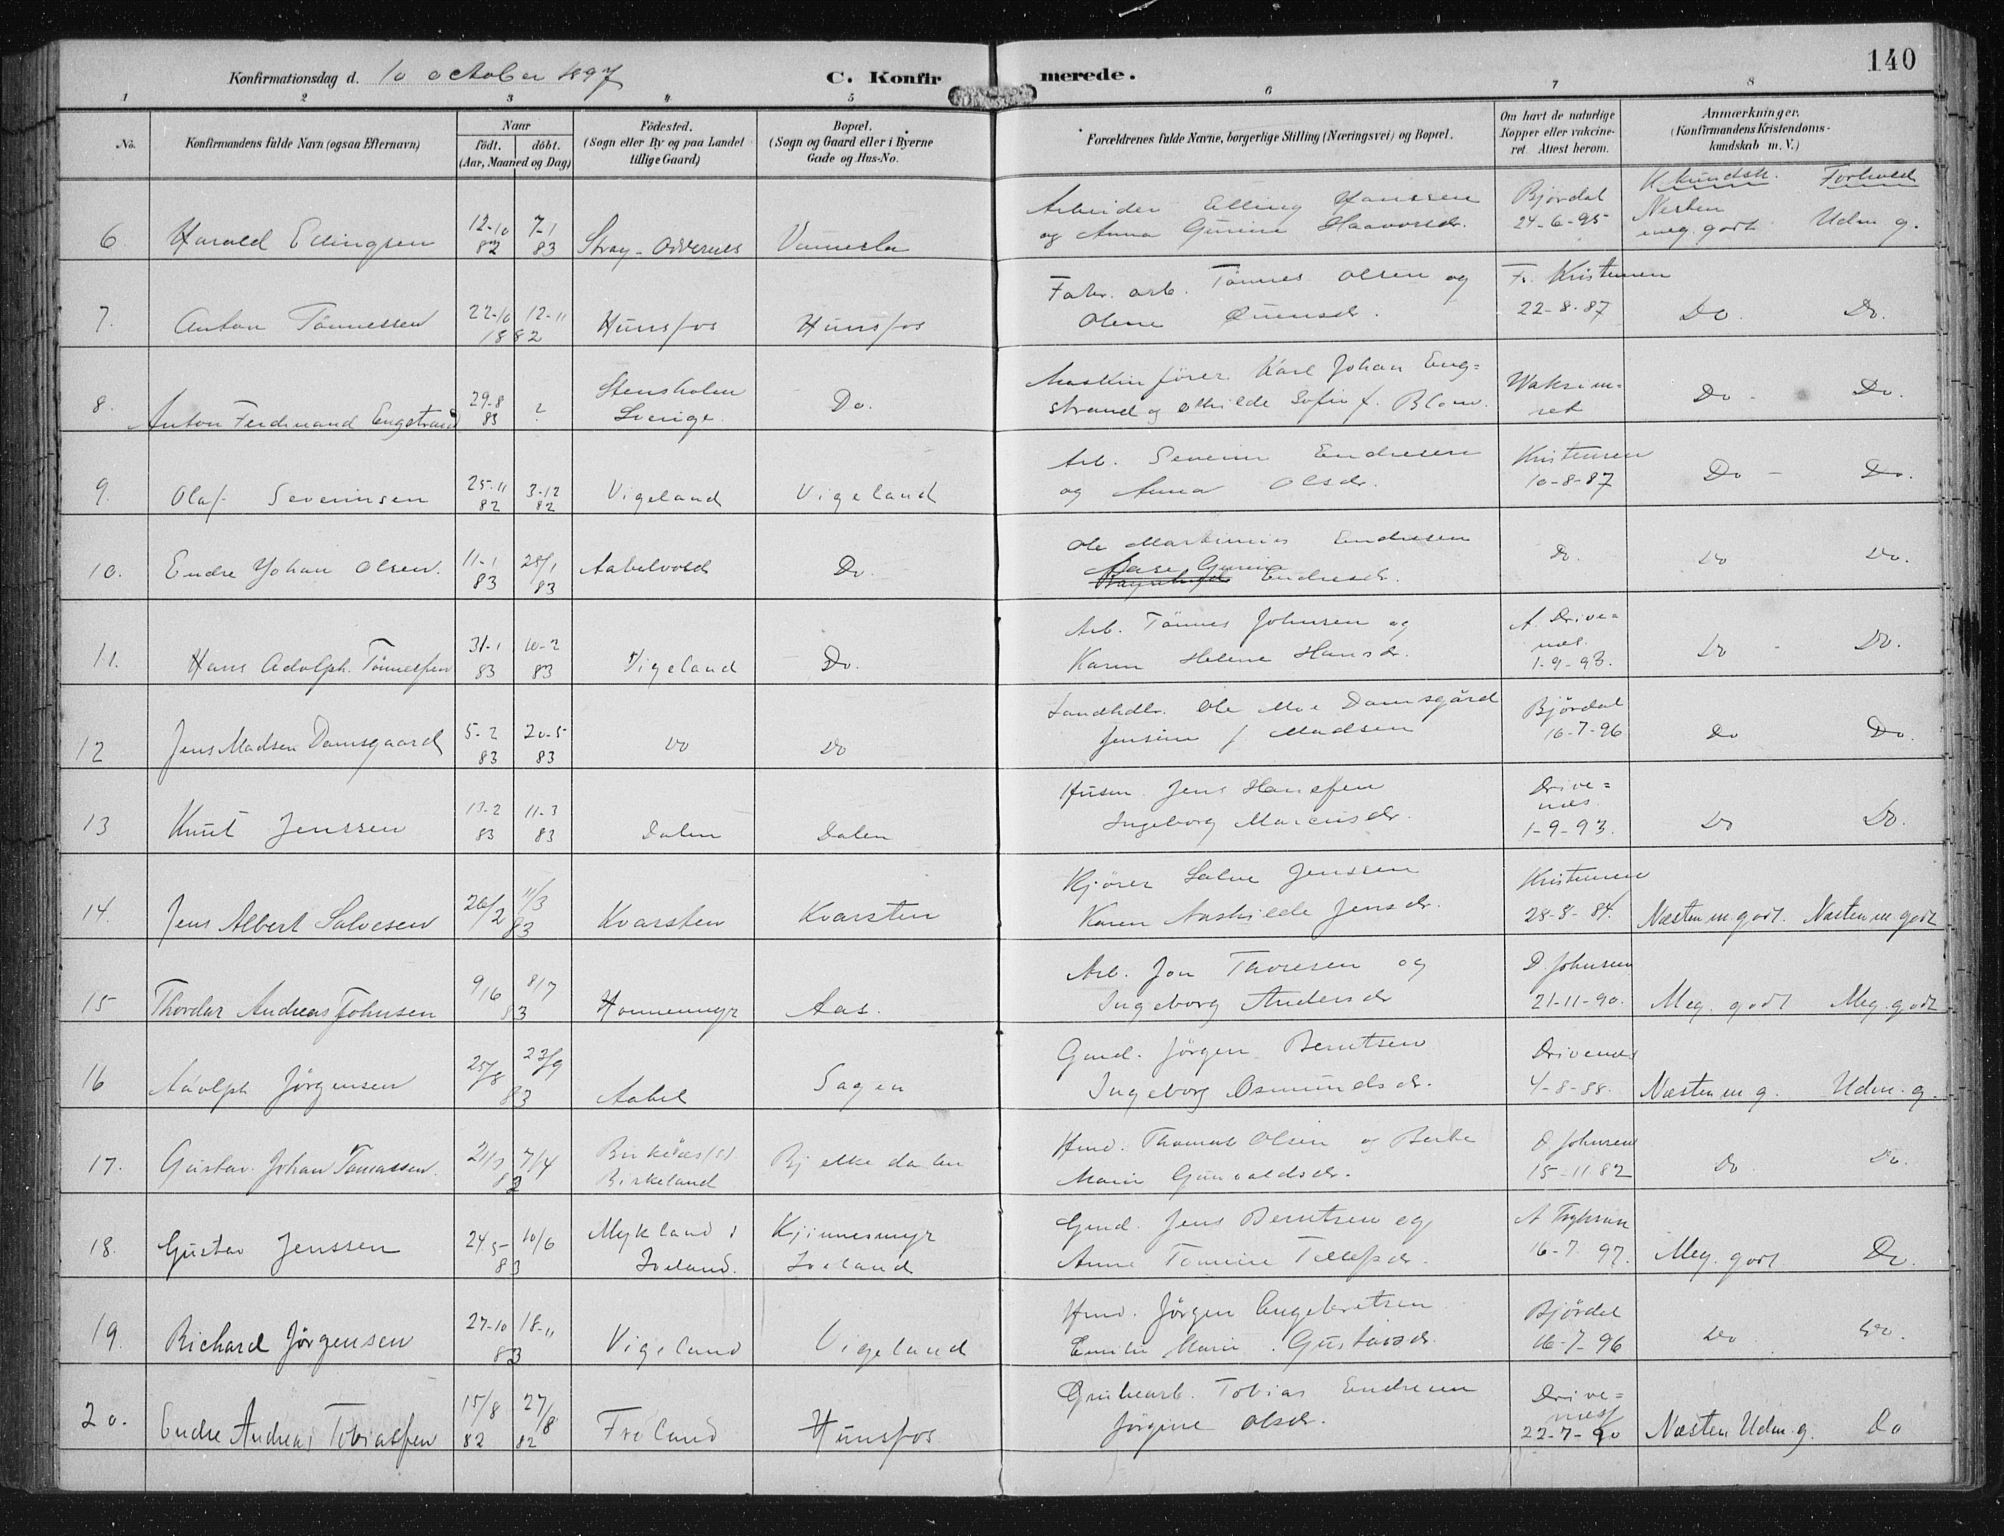 140
Konfirmationsdag d. 10 october 1897
C. Konfirmerede.
1 2 3 4 5 6 7 8
No.
Konfirmandens fulde Navn (ogsaa Efternavn)
Naar
födt. döbt.
(Aar, Maaned og Dag)
Födested.
(Sogn eller By og paa Landet
tillige Gaard)
Bopæl.
(Sogn og Gaard eller i Byerne
Gade og Hus-No.
Forældrenes fulde Navne, borgerlige Stilling (Næringsvei) og Bopæl.
Om havt de naturlige
Kopper eller vakcine-
ret. Attest herom.
Anmærkninger.
(Konfirmandens Kristendoms-
kundskab m. V.)
K kundsk. Forhold
Arbeider Elling Hanssen Bjørdal Næsten
6 Harald Ellingsen 12-10 82 7-1 83 Stray - Oddernes Vennesla og Anna Gurine Haavorsdr. 24-6-95 meg. godt. Udm g.
Fabr. arb. Tønnes Olsen og Fr. Kristensen
7. Anton Tønnessen 22-10 12-11 1882 Hunsfos Hunsfos Olene 22-8-87 Do. Do.
Stensholm Maskinfører Karl Johan Eng=
8. Anton Ferdinand Engstrand 29-8 83 ? Sverige Do. strand og Sofie f. Blom. Do - Do.
Arb. Severin Endresen Kristensen
9. Olaf Severinsen 25-11 82 3-12 82 Vigeland Vigeland og Anna Olsdr. 10-8-87 Do - Do.
Ole Martinius Endresen
10. Endre Johan Olsen. 11-1 83 25/1 83 Aabelvold Do. Aase Gurine Endresdr. Do. Do Do.
Arb. Tønnes Johnsen og A. Drive=
nes.
11. Hans Adolph Tønnessen 31-1 83 10-2 83 Vigeland Do. Karen Helene Hansdr. 1-9-93. Do - Do.
Landhdlr. Ole Moe Damsgård Bjørdal
12 Jens Madsen Damsgaard 5-2 83 20-5 83 Do Do Jensine f Madsen 16-7-96 Do Do.
Husm. Jens Hanssen Drive=
nes.
13 Knut Jenssen 13-2 83 11-3 83 Dalen Dalen Ingeborg Marcusdr. 1-9-93. Do Do.
Kjører Salve Jenssen Kristensen
14. Jens Albert Salvesen 26/2 11/3 83 Kvarsten Kvarsten Karen Jensdr. 28-8-84. Næsten m. godt. Næsten m. godt
Arb. Jon Thoresen og D. Johnsen
15 Thordar Andreas Johnsen 9/6 8/7 83 Honnemyr Aas. Ingeborg Andersdr 21-11-90. Meg. godt Meg. godt
Gmd. Jørgen Berntsen Drivenes
16 Adolph Jørgensen 25/8 23/9 83 Aabel Sagen Ingeborg Osmundsdr. 4-8-88. Næsten m g. Udm. g.
Hmd. Thomas Olsen og Berte D Johnsen
17. Gustav Johan Tomassen. 7/4 Birkeland Bjelkedalen Marie Gunvaldsdr. 15-11 82 Do Do.
Mykland i Kjinnesmyr Gmd. Jens Berntsen og
18. Gustav Jenssen 24/5 10/6 83 Iveland. Iveland Anne Tomine Tellefsdr. 16-7. 97. Meg. godt Do.
Hmd. Jørgen Engebretsen Bjørdal
19. Richard Jørgensen 27-10 18-11 83 Vigeland Vigeland Emilie Marie Gustavsdr. 16-7-96 Do. Do.
Grubearb. Tobias Endresen Drive=
nes
20. Endre Andreas Tobiassen 15/8 82 27/8 82 Froland Hunsfos Jørgine Olsdr. 22-7-90 Næsten Udm. g. Do